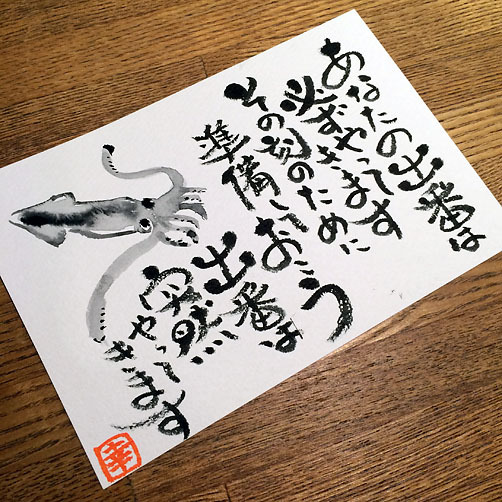 あなたの出番は
必ずやってきます
その刻のために
準備しておこう
出番は
突然
やってきます
幸